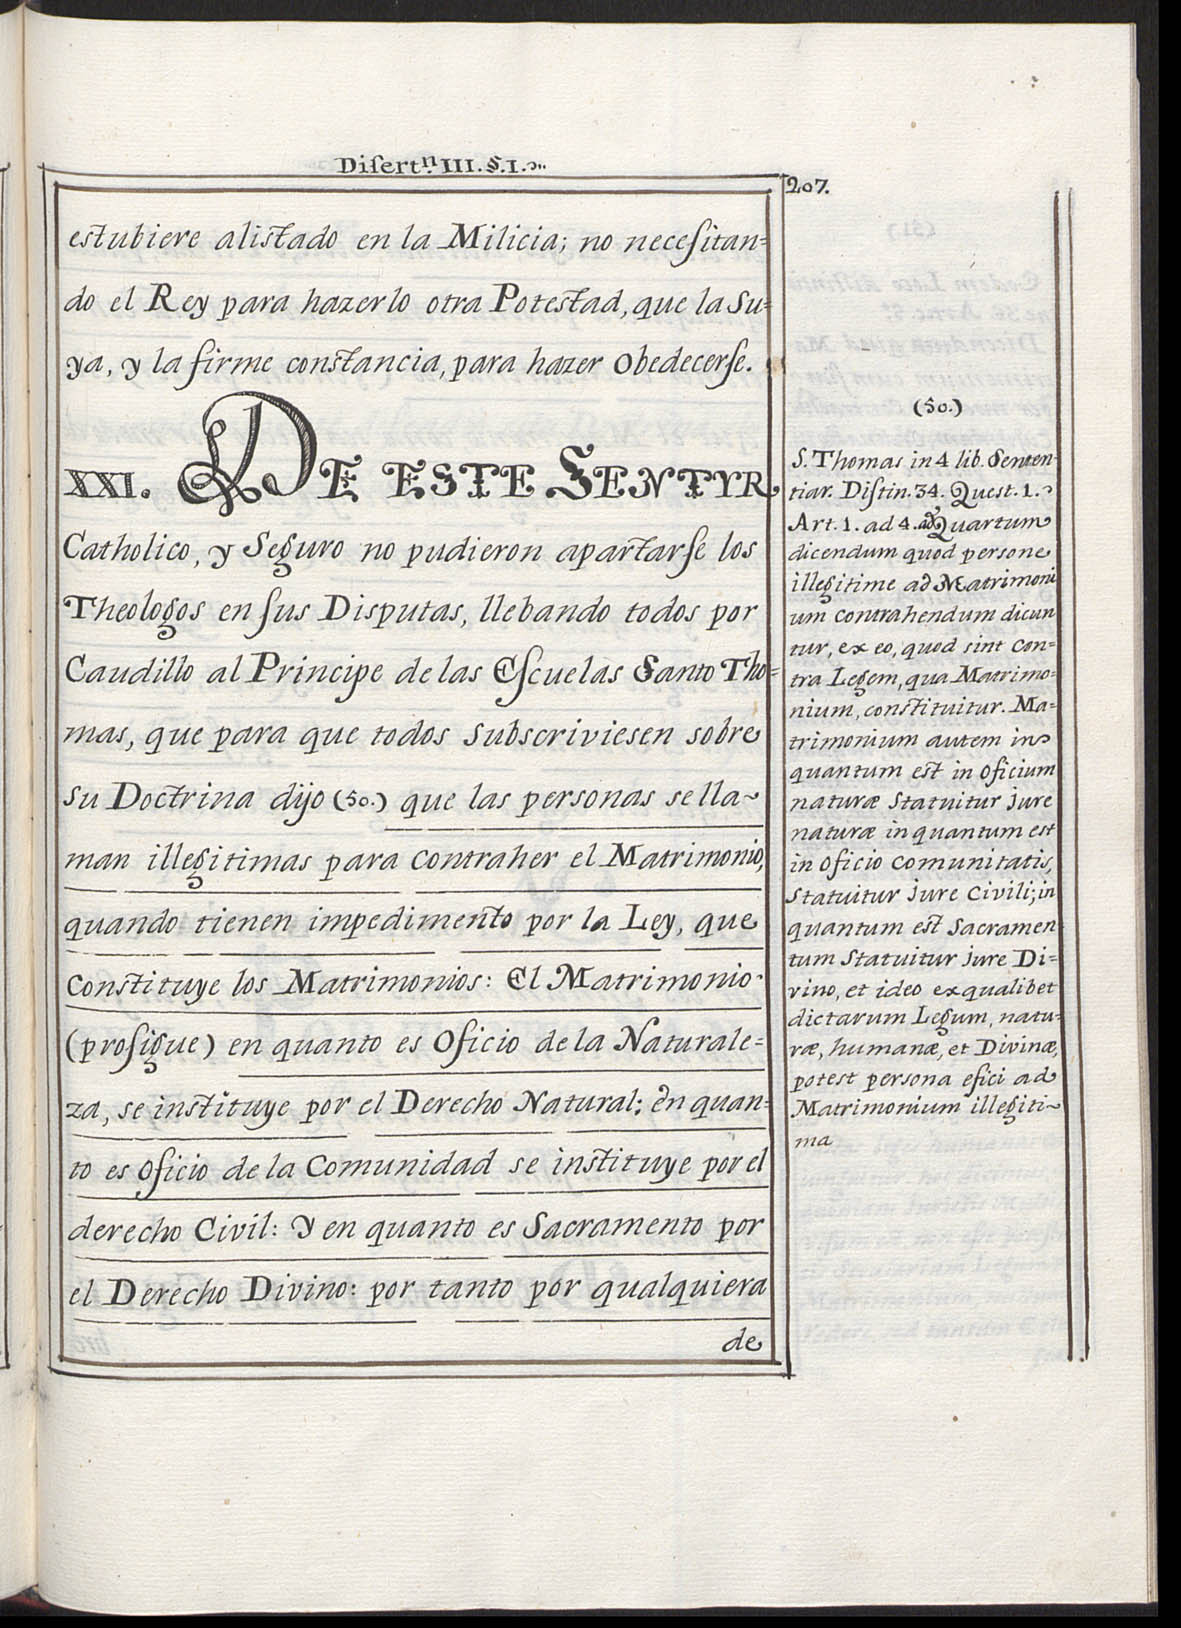 Disertⁿ. III. §. I.
207.
estubiere alistado en la Milicia; no necesitan=
do el Rey para hazerlo otra Potestad, que la Su=
ya, y la firme constancia, para hazer Obedecerse.
XXI. DE ESTE SENTYR
Catholico, y Seguro no pudieron apartarse los
Theologos en sus Disputas, llebando todos por
Caudillo al Principe de las Escuelas Santo Tho=
mas, que para que todos subscriviesen sobre
su Doctrina dijo (50.) que las personas se lla~
man illegitimas para contraher el Matrimonio,
quando tienen impedimento por la Ley, que
constituye los Matrimonios: El Matrimonio
(prosigue) en quanto es Oficio de la Naturale=
za, se instituye por el Derecho Natural; en quan=
to es Oficio de la Comunidad se instituye por el
derecho Civil: Y en quanto es Sacramento por
el Derecho Divino: por tanto por qualquiera
de
(50.)
S. Thomas in 4 lib. Senten-
tiar. Distin. 34. Quest. 1.
Art. 1. ad 4. ad Quartum
dicendum quod persone
illegitime ad Matrimoni
um contrahendum dicun
tur, ex eo, quod sint con=
tra Legem, qua Matrimo=
nium, constituitur. Ma=
trimonium autem in
quantum est in Oficium
naturæ Statuitur jure
naturæ in quantum est
in Oficio Comunitatis,
Statuitur jure Civili; in
quantum est Sacramen
tum Statuitur jure Di=
vino, et ideo ex qualibet
dictarum Legum, natu=
ræ, humanæ, et Divinæ,
potest persona efici ad
Matrimonium illegiti~
ma